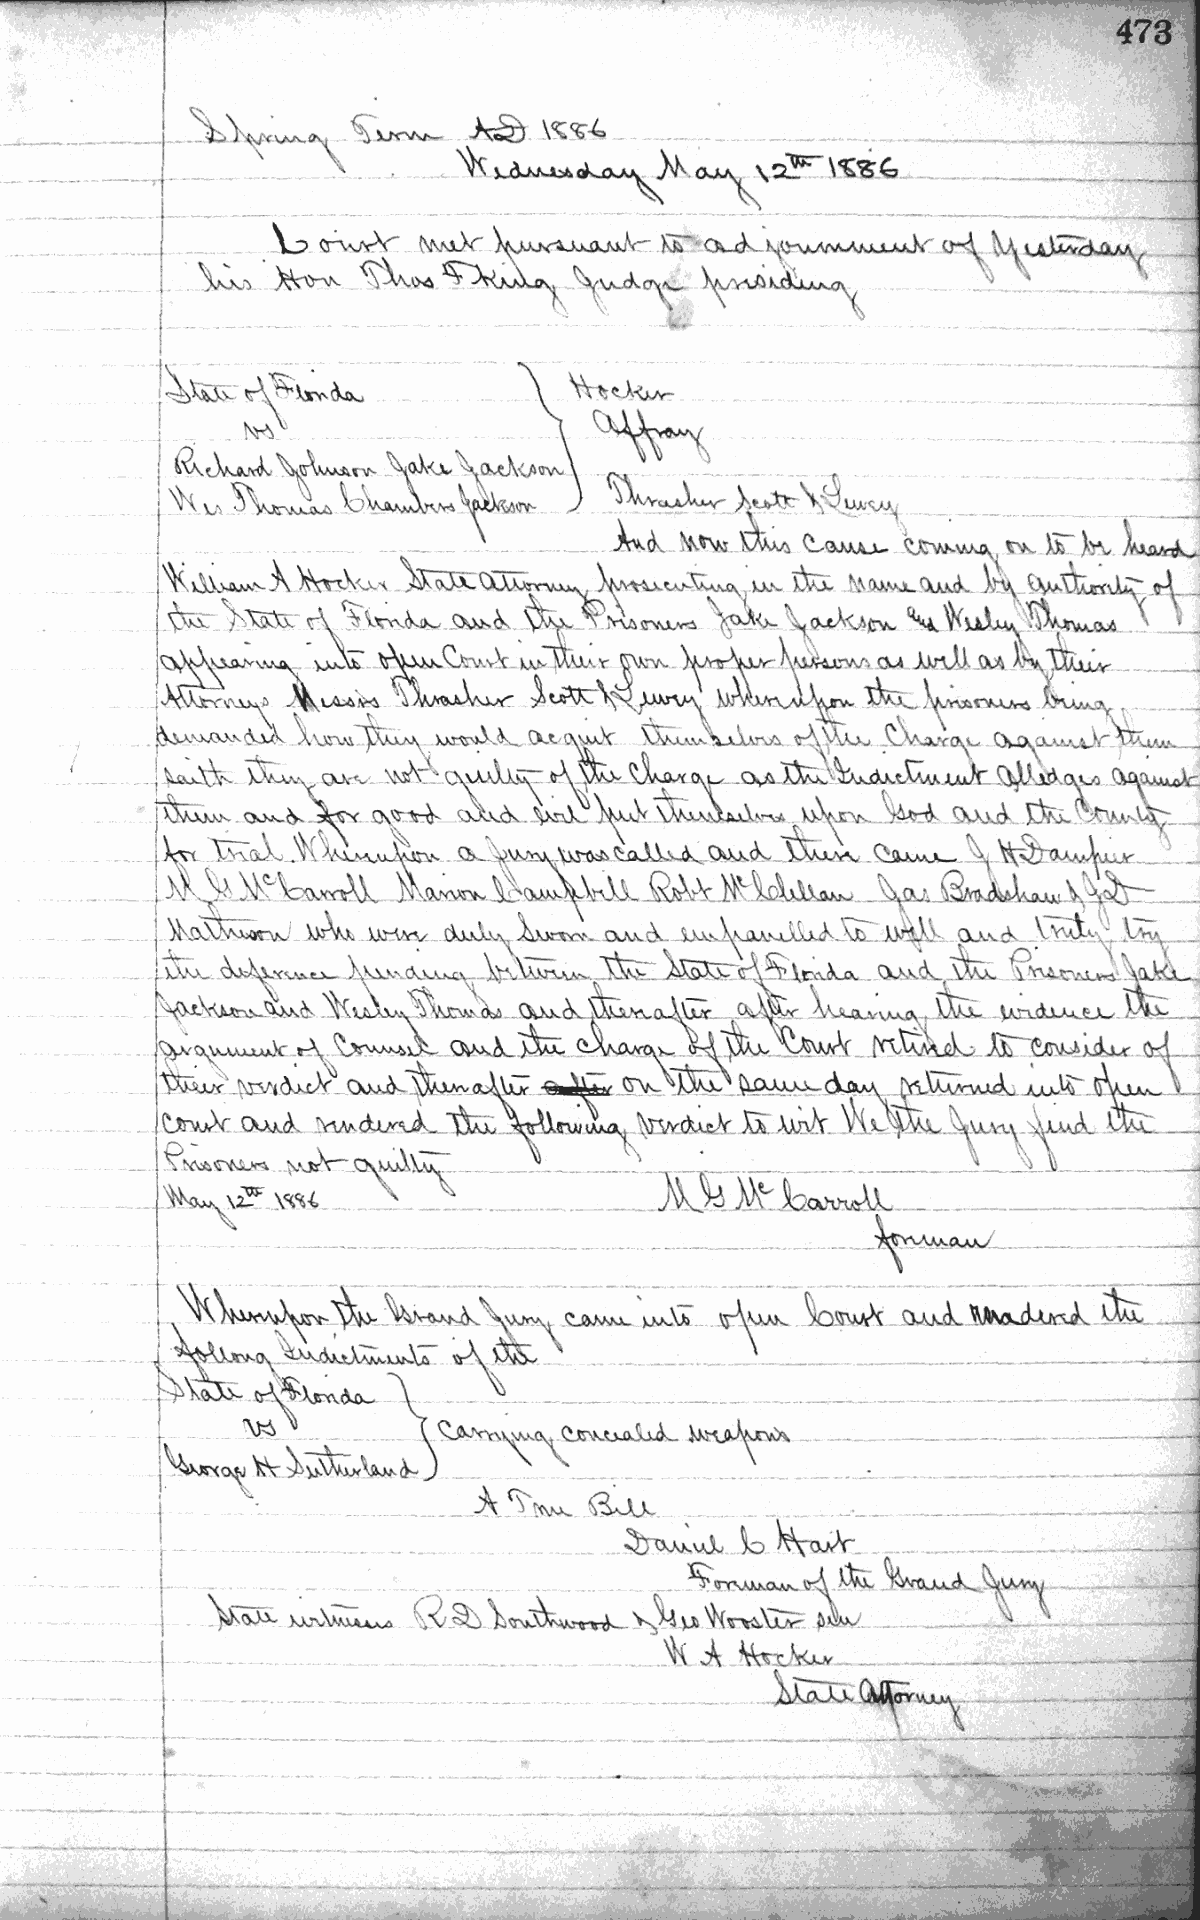 473
Spring Term AD 1886
Wednesday May 12th 1886
Court met pursuant to adjournment of Yesterday
his Hon Thos F King Judge presiding
State of Florida
vs
Richard Johnson Jake Jackson
Wes Thomas Chambers Jackson
Hocker
Affray
Thrasher Scott & Lewey
And now this cause coming on to be heard
William A Hocker State Attorney prosecuting in the name and by authority of
the State of Florida and the Prisoners Jake Jackson and Wesley Thomas
appearing into open Court in their own proper persons as well as by their
Attorneys Messrs Thrasher Scott & Lewey whereupon the prisoners being
demanded how they would acquit themselves of the Charge against them
saith they are not guilty of the Charge as the Indictment alledges against
them and for good and evil put themselves upon God and the County
for trial. Whereupon a Jury was called and there came J H Dampier
M G McCarroll Marion Campbell Robt McClellan Jas Bradshaw & J D
Matheson who were duly Sworn and empanelled to well and truly try
the deference pending between the State of Florida and the Prisoners Jake
Jackson and Wesley Thomas and thereafter after hearing the evidence the
argument of Counsel and the charge of the Court retired to consider of
their verdict and thereafter after on the same day returned into open
court and rendered the following verdict to wit We the Jury find the
Prisoners not guilty
May 12th 1886
M G McCarroll
foreman
Whereupon the Grand Jury came into open Court and rendered the
follong Indictments of the
State of Florida
vs
George H Sutherland
Carrying concealed weapons
A True Bill
Daniel C Hart
Foreman of the Grand Jury
State witnesses R D Southwood & Geo Wooster sen
W A Hocker
State Attorney